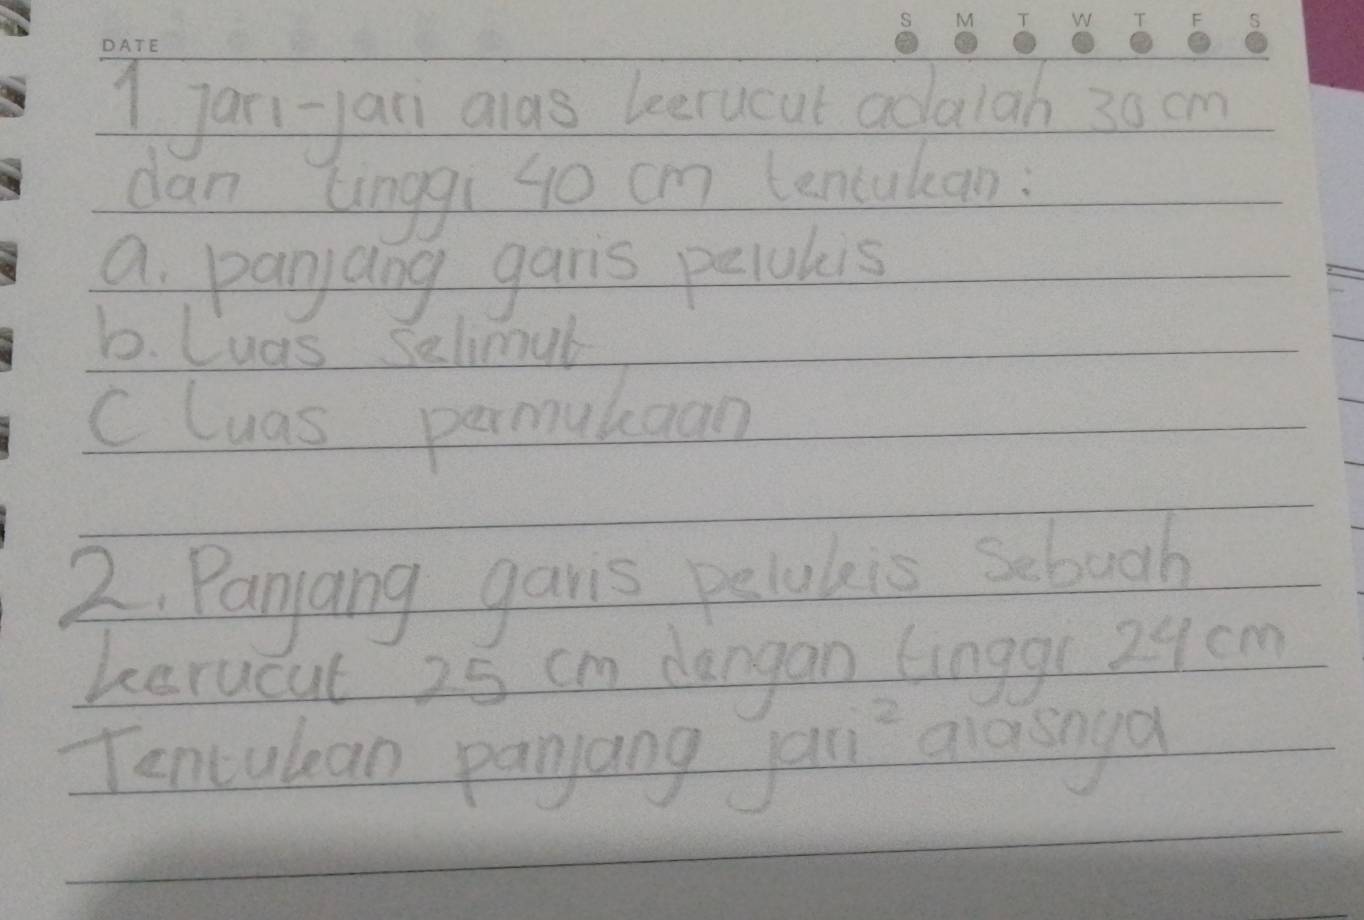 S M T W T F S
DATE
1 jari-jari alas kerucut adalah 30 cm
dan tinggi 40 cm tentukan:
a. panjang garis pelukis
b. Luas selimut
C Luas permukaan
2. Panjang garis pelukis sebuah
kerucut 25 cm dengan tinggi 24 cm
Tentukan panjang jari² alasnya